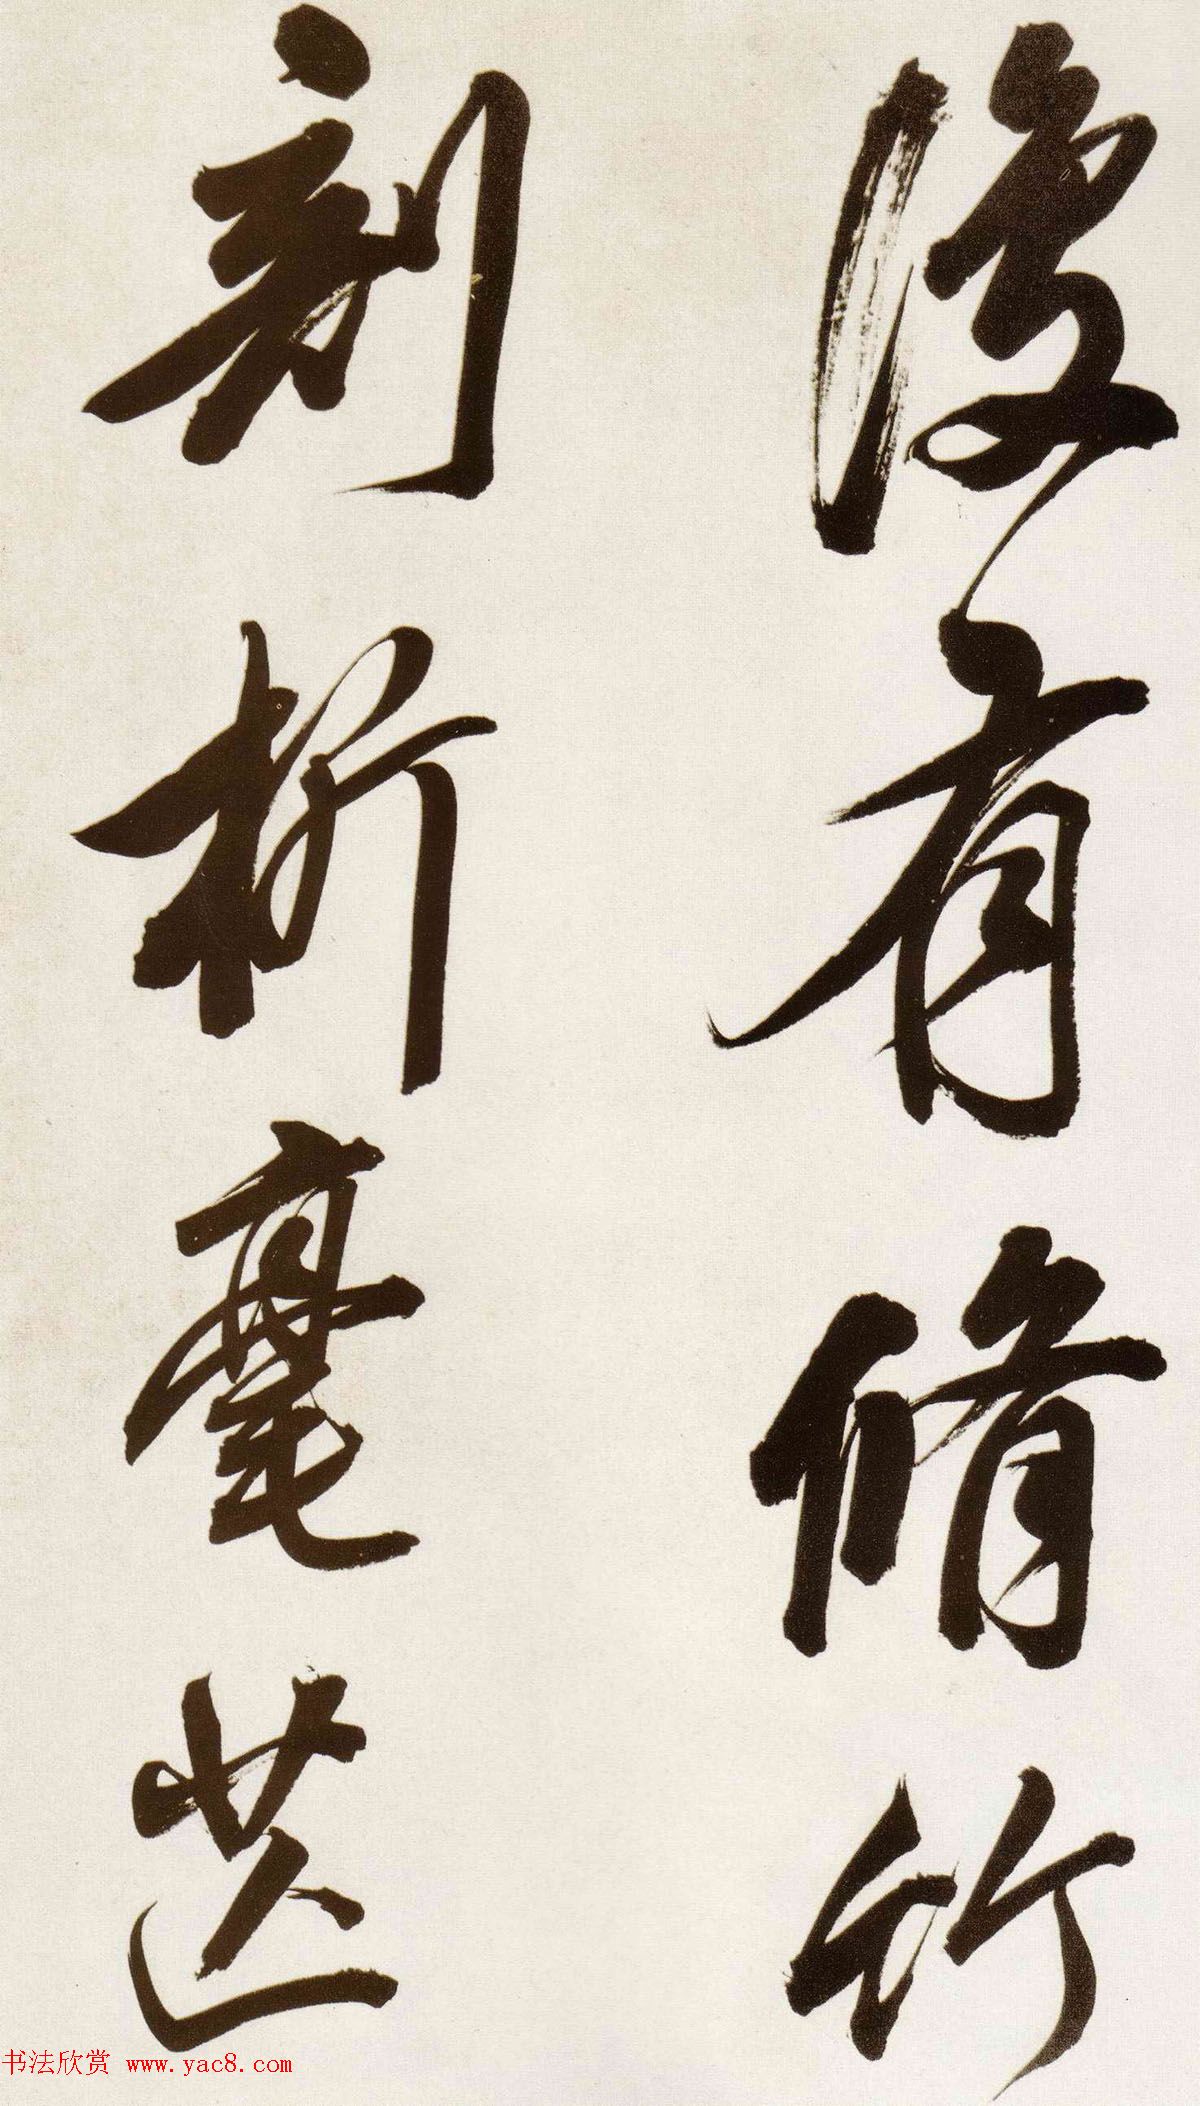 後有脩竹
刻析毫芒
书法欣赏 www.yac8.com